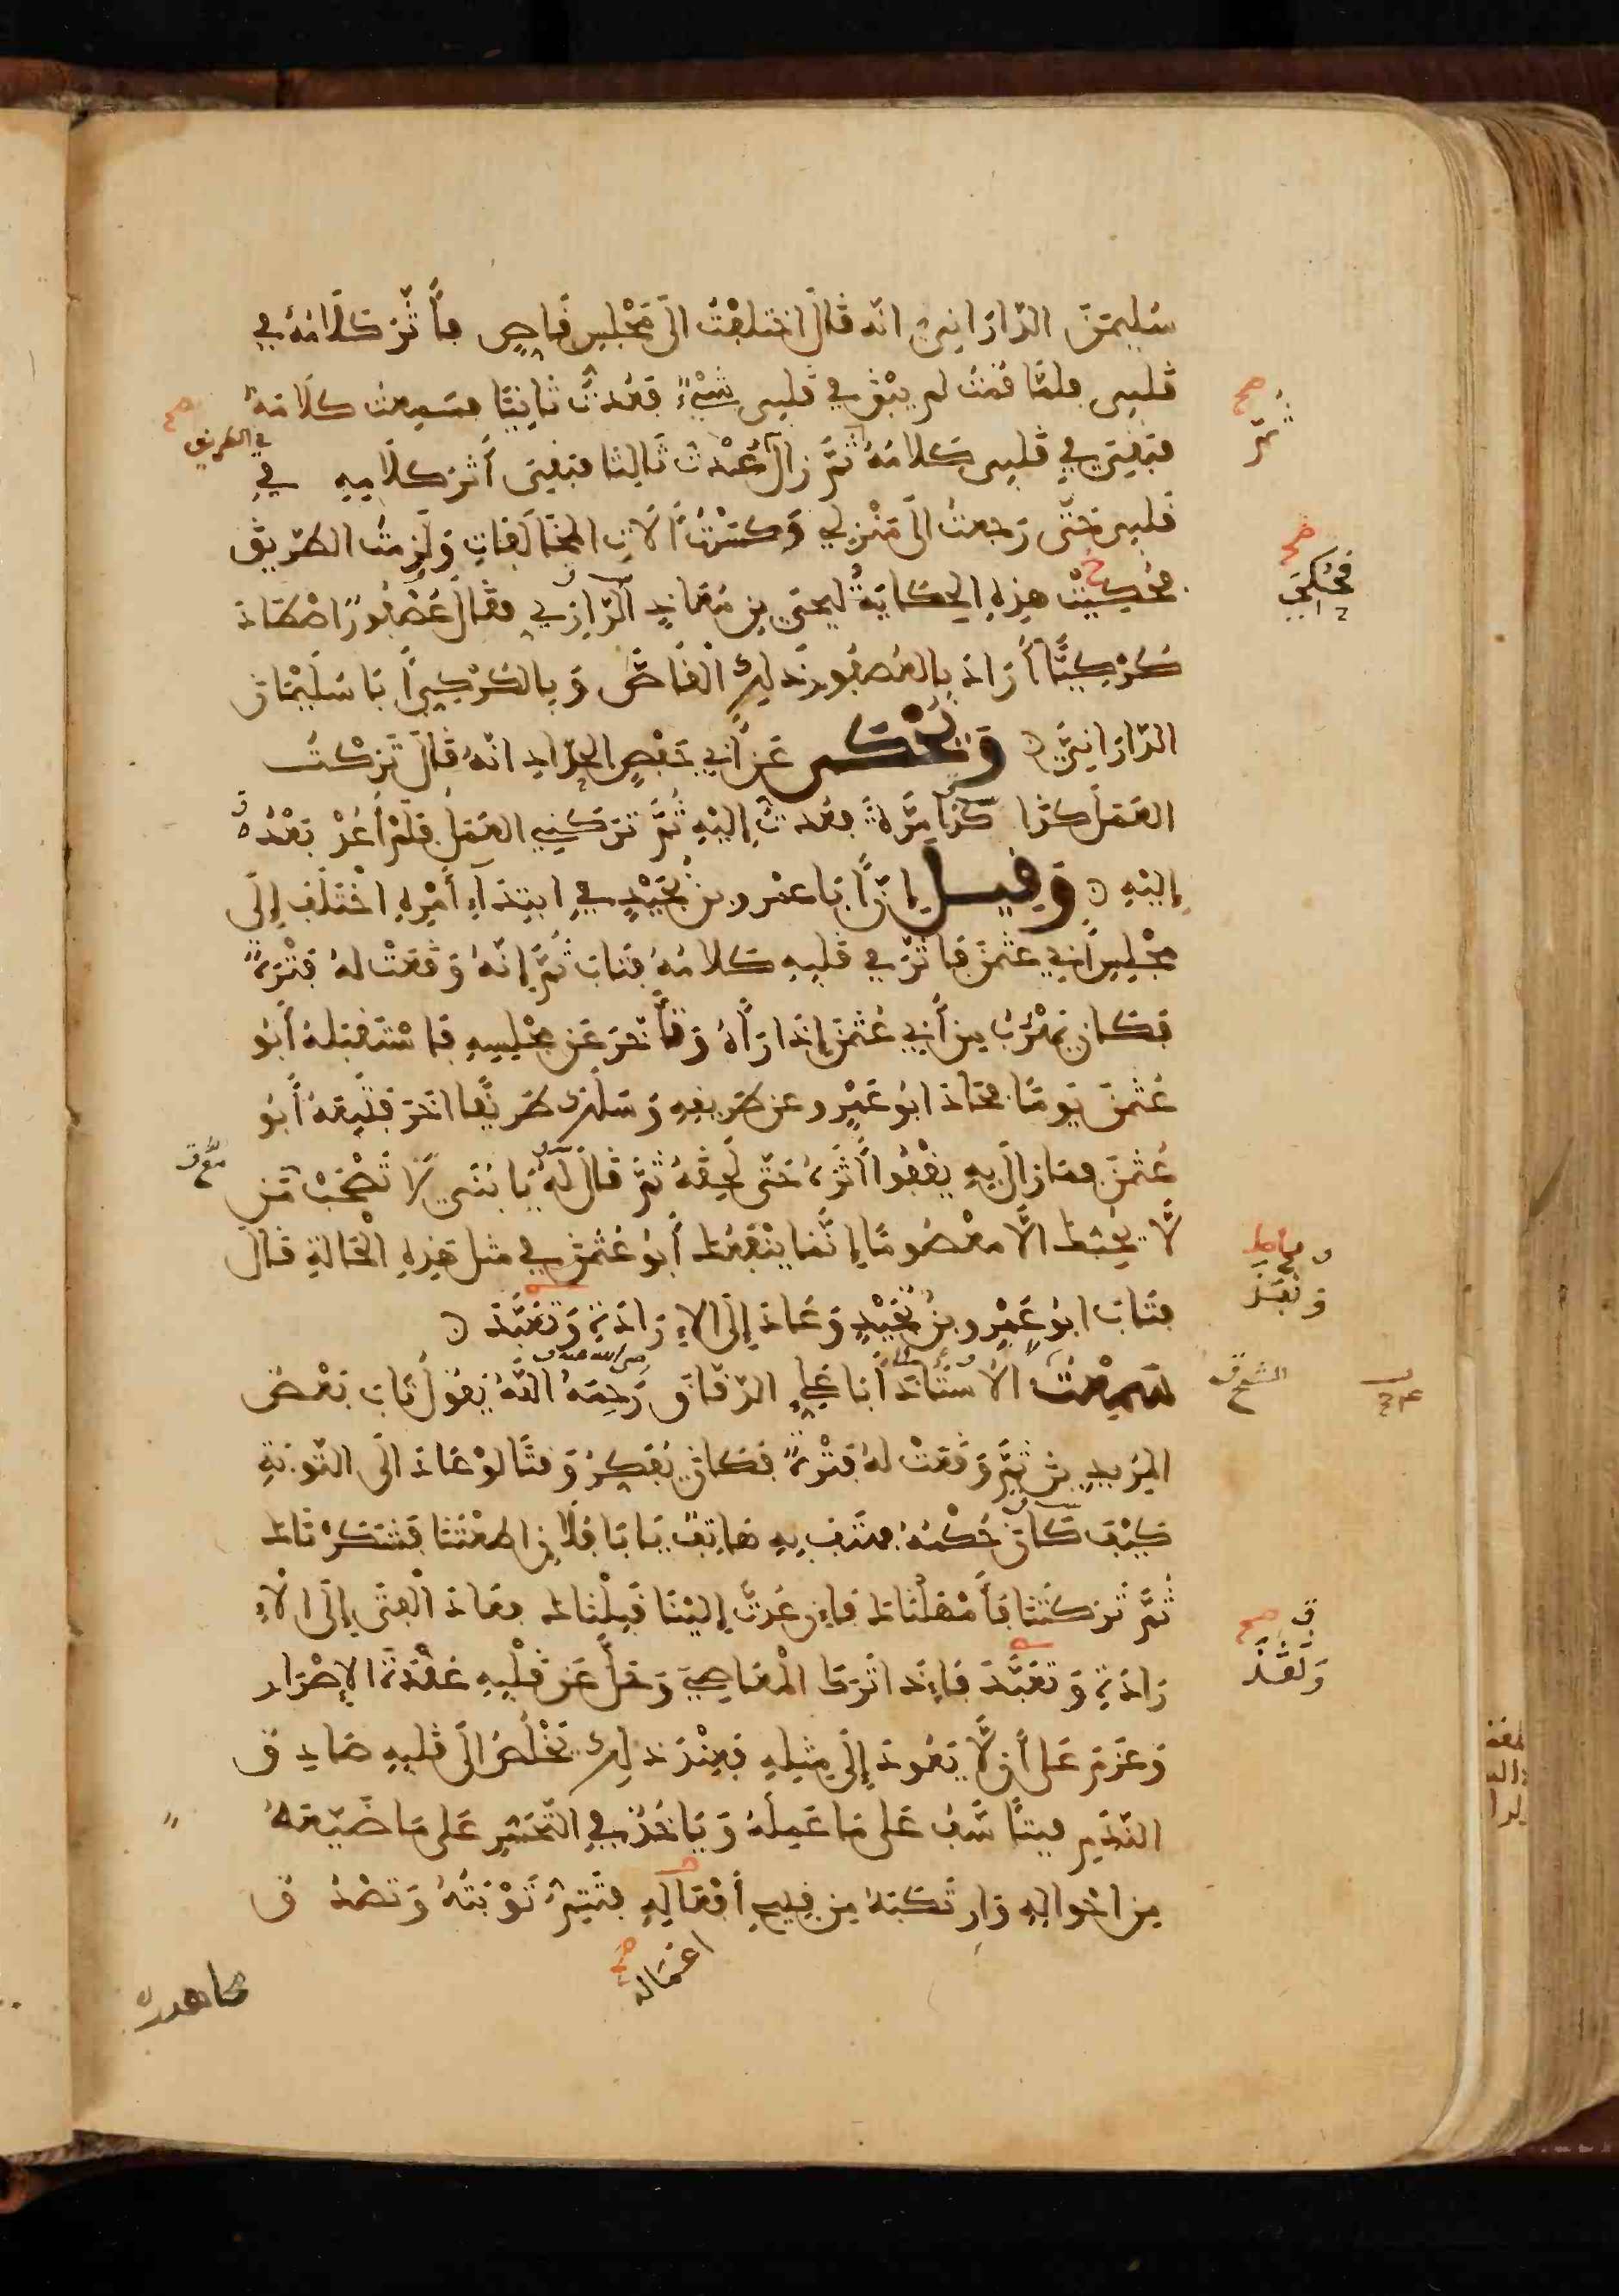 سُليمٰنَ الدّارَانِيّ انّه قالَ اختَلَفْتُ الَى مَجْلِسِ قَاصٍ فَأَثَّرَ كَلَامُهُ في
قَلبي فلمّا قُمتُ لم يَبْقَ في قلبي شَيْءٌ فَعُدتُّ ثانِيًا فسَمِعتُ كلامَهُ
فبَقِيَ في قَلبي كلامُهُ ثمَّ زالَ عُدْتُ ثَالِثا فبَقِيَ أَثَرُ كلامِهِ في
في الطريق صح
ثمّ صح
قلبي حَتّى رَجعتُ الَى مَنْزِلي وَكسَرْتُ آلَاتِ المخَالَفَاتِ وَلَزِمتُ الطّرِيقَ
فحُكِيَتْ هٰذِهِ الحِكَايَةُ لِيَحيَى بنِ مُعَاذٍ الرّازِي فقالَ عُصْفُورٌ اصْطَادَ
فحُكِيَ صح
كُرْكِيًّا أَرَادَ بِالعُصفُورِ ذٰلِكَ القَاصَّ وَبِالكُرْكِيِّ أَبَا سُلَيْمَانَ
الدّارَانِيّ وَيُحْكى عَن أَبي حَفْصٍ الحدّادِ انّهُ قَالَ تَرَكْتُ
العَمَلَ كَذَا كَذَا مَرَّةً فعُدتُ إِلَيْهِ ثُمَّ تَرَكَنِي العَمَلُ فَلَمْ أَعُدْ بَعْدُ
إِلَيْهِ وَقيل إنّ أَبَا عَمْرو بنَ نُجَيْدٍ في ابتِدَآءِ أَمْرِهِ اخْتَلَفَ إِلَى
مَجْلِسِ أَبي عثمٰنَ فَأَثَّرَ في قَلبِهِ كَلامُهُ فتَابَ ثُمَّ إنّهُ وَقَعَتْ لهُ فَتْرَةٌ
فكانَ يَهْرُبُ مِن أَبي عُثمٰنَ إِذَا رَآهُ وَتَأَخّرَ عَن مَجْلِسِهِ فَاسْتَقبَلهُ أَبُو
عُثمٰنَ يَومًا فحَادَ ابُو عَمْرٍو عن طَرِيقِهِ وَسَلَكَ طَرِيقًا اخَرَ فَتَبِعَهُ أَبُو
عُثمٰنَ فمَا زالَ بِهِ يَقْفُوا أَثَرَهُ حَتّى لَحِقَهُ ثمَّ قَالَ لَهُ يَا بُنَيّ لَا تَصْحَبْ مَن
لَا يُحِبُّكَ الّا مَعْصُومًا إِنّمَا يَنْفَعُكَ أَبُو عُثمٰنَ في مثلِ هٰذِهِ الْحَالَةِ قالَ
فتَابَ ابُو عَمْرِو بنُ نُجَيْدٍ وَعَادَ إِلَى الإِرَادَةِ وَتَعَبَّدَ
وَنَفَذَ
سَمِعْتُ الأُسْتَاذَ أَبَا عَلِيٍّ الدّقّاقَ رَحِمَهُ اللّهُ يَقُولُ تَابَ بَعْضُ
الشيخ
المُرِيدِينَ ثمَّ وَقَعَتْ لهُ فَتْرَةٌ فكَانَ يُفَكِّرُ وَقتًا لَوْ عَادَ الَى التّوبَةِ
كَيْفَ كَانَ حُكْمُهُ فهتَفَ بِهِ هَاتِفٌ يَا بَا فُلَانٍ اطعْتَنَا فشَكَرْنَاكَ
ثُمَّ تَرَكْتَنَا فَأَمْهَلْنَاكَ فَإِن عُدتَّ إِلَيْنَا قَبِلْنَاكَ فعَادَ الْفَتَى إِلَى الْإِ
رَادَةِ وَتَعَبَّدَ فَإِذَا تَرَكَ الْمَعَاصِيَ وَحَلَّ عَن قَلْبِهِ عُقْدَةَ الإِصْرَارِ
وَنَفَذَ صح
وَعَزَمَ عَلَى أَن لَّا يَعُودَ إِلَى مِثلِهِ فعِنْدَ ذٰلِكَ يَخْلُصُ الَى قلبِهِ صَادِقُ
النّدَمِ فيَتأَسَّفُ عَلى مَا عَمِلَهُ وَيَأخُذُ في التّحَسُّرِ عَلى مَا ضَيّعَهُ
مِن احْوَالِهِ وَارتَكَبَهُ مِن قَبِيحِ أَفعَالِهِ فتَتِمُّ تَوْبَتُهُ وَتَصْدُقُ
اعمَاله صح
مجاهدته